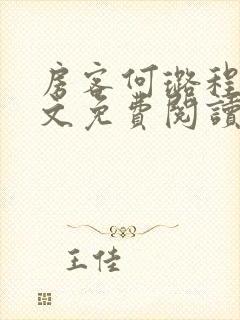 房客何璐程
文免費閱讀
王佳